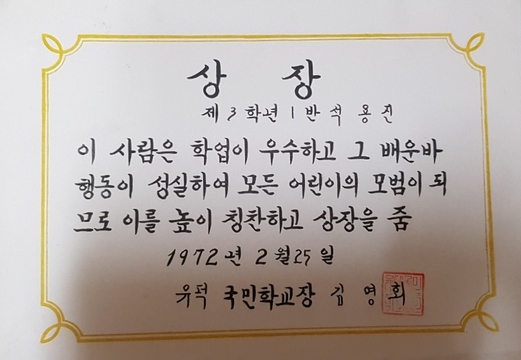 상 장
제 3 학년 1 반 석 용 진
이 사람은 학업이 우수하고 그 배운바
행동이 성실하여 모든 어린이의 모범이 되
므로 이를 높이 칭찬하고 상장을 줌
1972년 2월25일
국민학교장 김 영 회